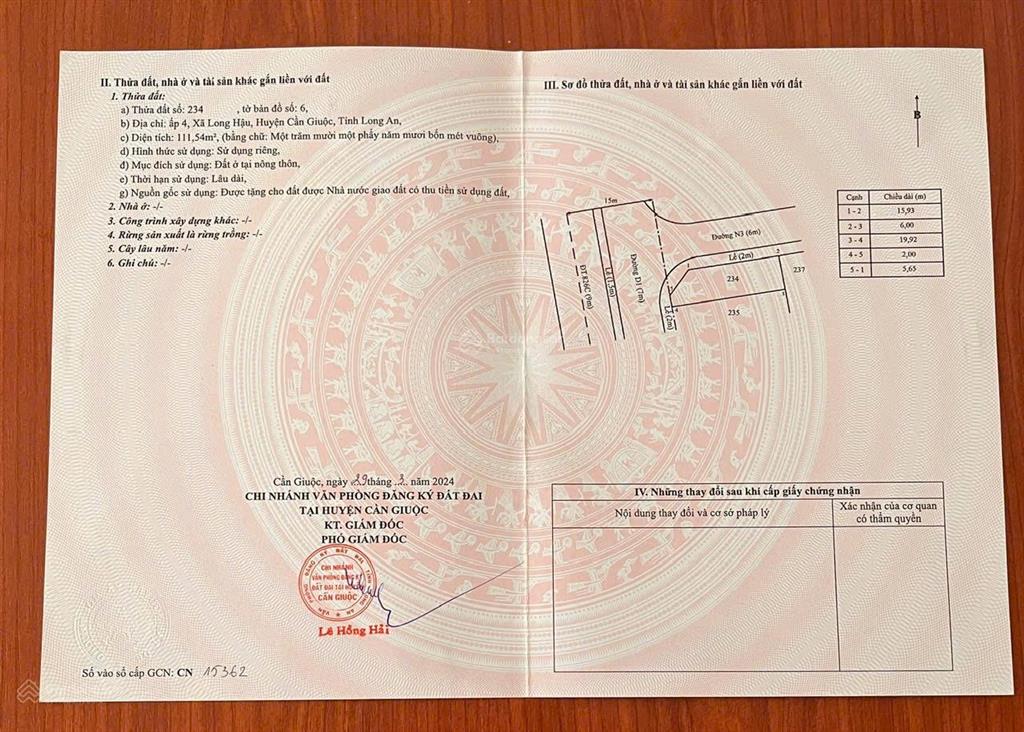 II. Thửa đất, nhà ở và tài sản khác gắn liền với đất
1. Thửa đất:
a) Thửa đất số: 234 , tờ bản đồ số: 6,
b) Địa chỉ: ấp 4, Xã Long Hậu, Huyện Cần Giuộc, Tỉnh Long An,
c) Diện tích: 111,54m², (bằng chữ: Một trăm mười một phẩy năm mươi bốn mét vuông),
d) Hình thức sử dụng: Sử dụng riêng,
đ) Mục đích sử dụng: Đất ở tại nông thôn,
e) Thời hạn sử dụng: Lâu dài,
g) Nguồn gốc sử dụng: Được tặng cho đất được Nhà nước giao đất có thu tiền sử dụng đất,
2. Nhà ở: -/-
3. Công trình xây dựng khác: -/-
4. Rừng sản xuất là rừng trồng: -/-
5. Cây lâu năm: -/-
6. Ghi chú: -/-
Cần Giuộc, ngày 29 tháng 3 năm 2024
CHI NHÁNH VĂN PHÒNG ĐĂNG KÝ ĐẤT ĐAI
TẠI HUYỆN CẦN GIUỘC
KT. GIÁM ĐỐC
PHÓ GIÁM ĐỐC
CHI NHÁNH
VĂN PHÒNG ĐĂNG KÝ
ĐẤT ĐAI TẠI
CẦN GIUỘC
Lê Hồng Hải
Số vào sổ cấp GCN: CN 15362
III. Sơ đồ thửa đất, nhà ở và tài sản khác gắn liền với đất
B
15m
Đường N3 (6m)
Lề (2m)
ĐT.826C (9m)
Lề (1,5m)
Đường D1 (7m)
Lề (2m)
1
2
3
234
235
237
Cạnh Chiều dài (m)
1 - 2 15,93
2 - 3 6,00
3 - 4 19,92
4 - 5 2,00
5 - 1 5,65
IV. Những thay đổi sau khi cấp giấy chứng nhận
Nội dung thay đổi và cơ sở pháp lý
Xác nhận của cơ quan
có thẩm quyền